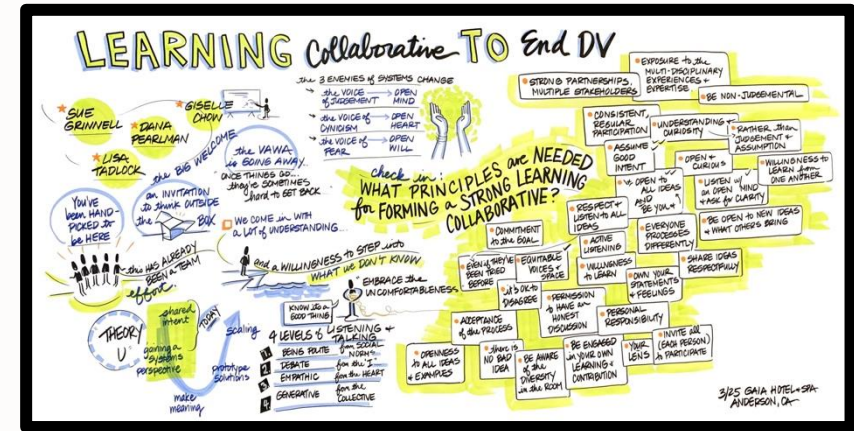 LEARNING Collaborative TO End DV
SUE
GRINNELL
DANA
PEARLMAN
GISELLE
CHOW
LISA
TADLOCK
the BIG WELCOME
the VAWA
is GOING AWAY...
ONCE THINGS GO...
they're SOMETIMES
hard to GET BACK...
You've
been HAND-
PICKED to
be HERE
an INVITATION
to THINK OUTSIDE
the BOX
this HAS ALREADY
been a TEAM
effort.
WE COME in WITH
a LOT of UNDERSTANDING...
and a WILLINGNESS to STEP into
WHAT WE DON'T KNOW
"EMBRACE the
UNCOMFORTABLENESS"
KNOW it's a
GOOD THING
the 3 ENEMIES of SYSTEMS CHANGE
the VOICE of JUDGEMENT → OPEN MIND
the VOICE of CYNICISM → OPEN HEART
the VOICE of FEAR → OPEN WILL
THEORY
U
shared
intent
TODAY
gaining a
SYSTEMS
perspective
make
meaning
prototype
solutions
scaling
4 LEVELS of LISTENING &
TALKING
1. BEING POLITE for SOCIAL NORMS
2. DEBATE for the "I"
3. EMPATHIC for the HEART
4. GENERATIVE for the COLLECTIVE
check in:
WHAT PRINCIPLES are NEEDED
for FORMING a STRONG LEARNING
COLLABORATIVE?
STRONG PARTNERSHIPS,
MULTIPLE STAKEHOLDERS
EXPOSURE to the
MULTI-DISCIPLINARY
EXPERIENCES &
EXPERTISE
BE NON-JUDGEMENTAL
CONSISTENT,
REGULAR
PARTICIPATION
UNDERSTANDING &
CURIOSITY
RATHER than
JUDGEMENT &
ASSUMPTION
ASSUME
GOOD
INTENT
OPEN &
CURIOUS
LISTEN w/
an OPEN MIND
& ASK for CLARITY
WILLINGNESS to
LEARN from
ONE ANOTHER
OPEN to
ALL IDEAS
AND
BE YOU
RESPECT &
LISTEN to ALL
IDEAS
BE OPEN to NEW IDEAS
& WHAT OTHERS BRING
COMMITMENT
to the GOAL
ACTIVE
LISTENING
EVERYONE
PROCESSES
DIFFERENTLY
EVEN if THEY'VE
BEEN TRIED
BEFORE
EQUITABLE
VOICES &
SPACE
WILLINGNESS
to LEARN
SHARE IDEAS
RESPECTFULLY
it's OK to
DISAGREE
OWN YOUR
STATEMENTS
& FEELINGS
PERMISSION
to HAVE an
HONEST
DISCUSSION
PERSONAL
RESPONSIBILITY
ACCEPTANCE
of the PROCESS
OPENNESS
to ALL IDEAS
& EXAMPLES
there is
NO BAD
IDEA
BE AWARE
of the
DIVERSITY
in the ROOM
BE ENGAGED
in YOUR OWN
LEARNING &
CONTRIBUTION
YOUR
LENS
INVITE all
(EACH PERSON)
to PARTICIPATE
3/25 GAIA HOTEL & SPA
ANDERSON, CA